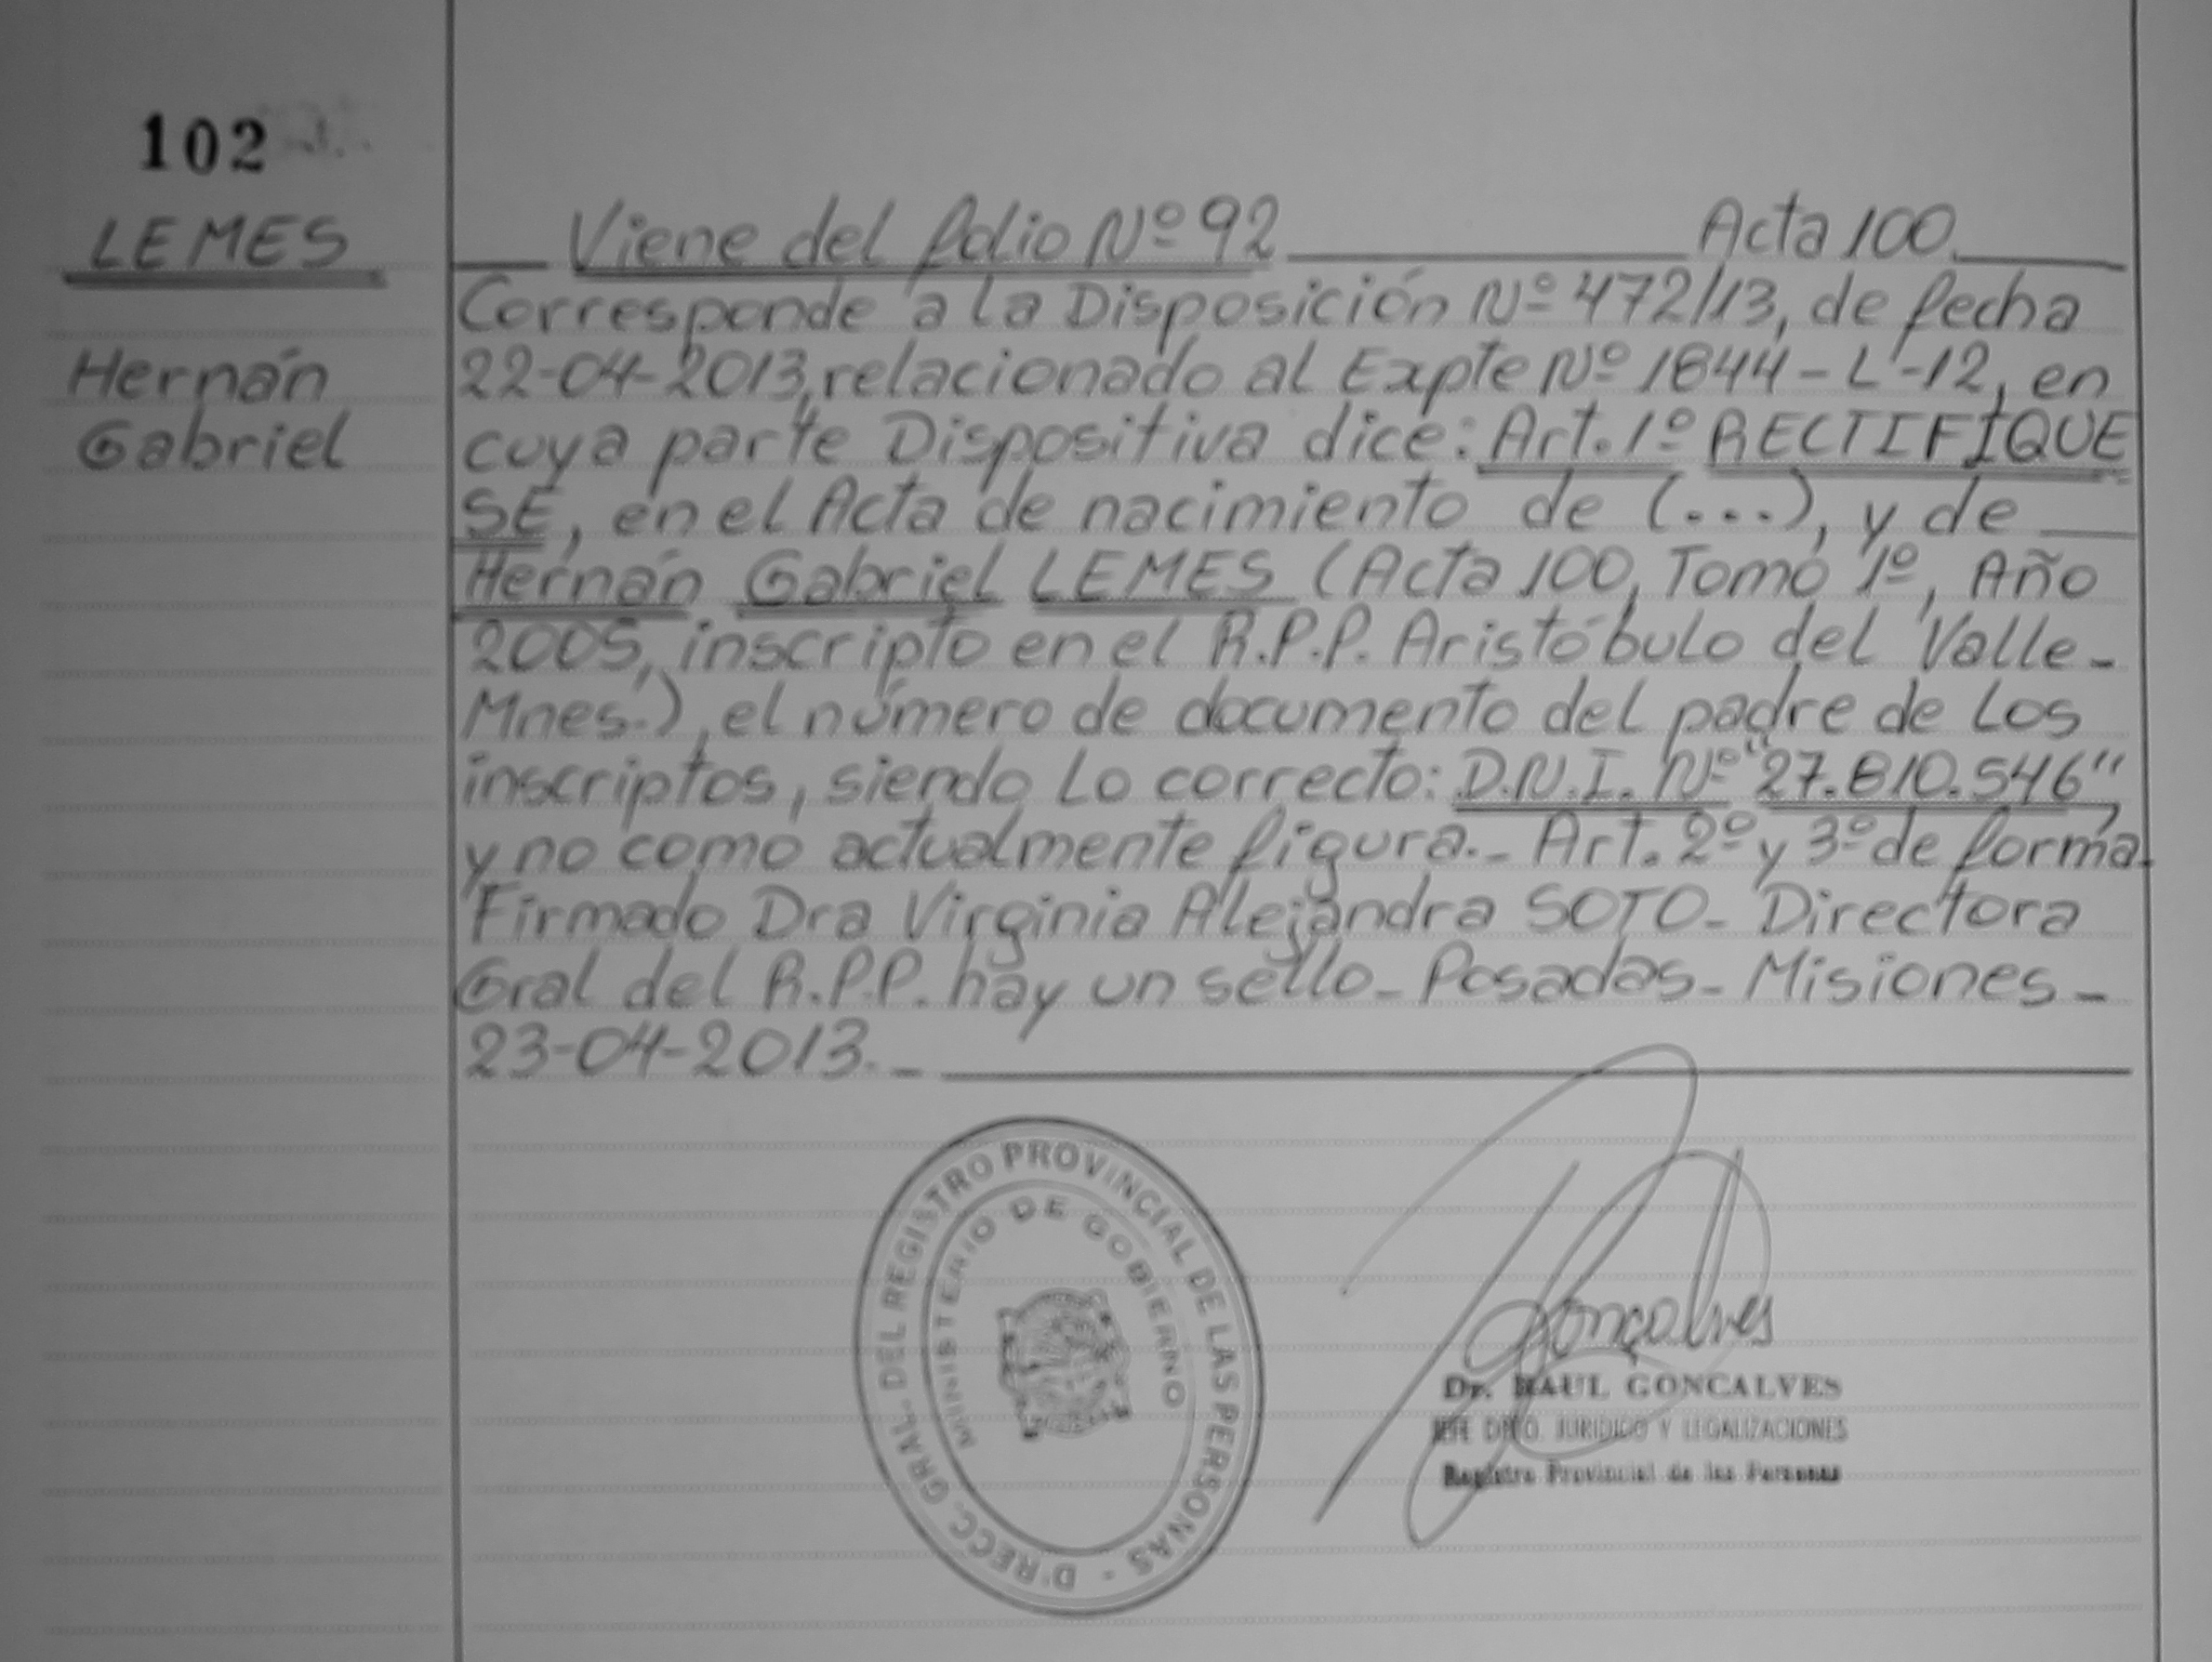 102
LEMES
Hernán
Gabriel
Viene del folio Nº 92 Acta 100
Corresponde a la Disposición Nº 472/13, de fecha
22-04-2013, relacionado al Expte Nº 1844-L-12, en
cuya parte Dispositiva dice: Art. 1º RECTIFIQUE
SE, en el Acta de nacimiento de (...), y de
Hernán Gabriel LEMES (Acta 100, Tomo 1º, Año
2005, inscripto en el R.P.P. Aristóbulo del Valle-
Mnes.), el número de documento del padre de los
inscriptos, siendo lo correcto: D.N.I. Nº "27.810.546"
y no como actualmente figura.- Art. 2º y 3º de forma.
Firmado Dra Virginia Alejandra SOTO- Directora
Gral del R.P.P. hay un sello- Posadas- Misiones-
23-04-2013.-
DIRECC. GRAL. DEL REGISTRO PROVINCIAL DE LAS PERSONAS -
MINISTERIO DE GOBIERNO
Gonçalves
Dr. RAUL GONCALVES
JEFE DPTO. JURIDICO Y LEGALIZACIONES
Registro Provincial de las Personas